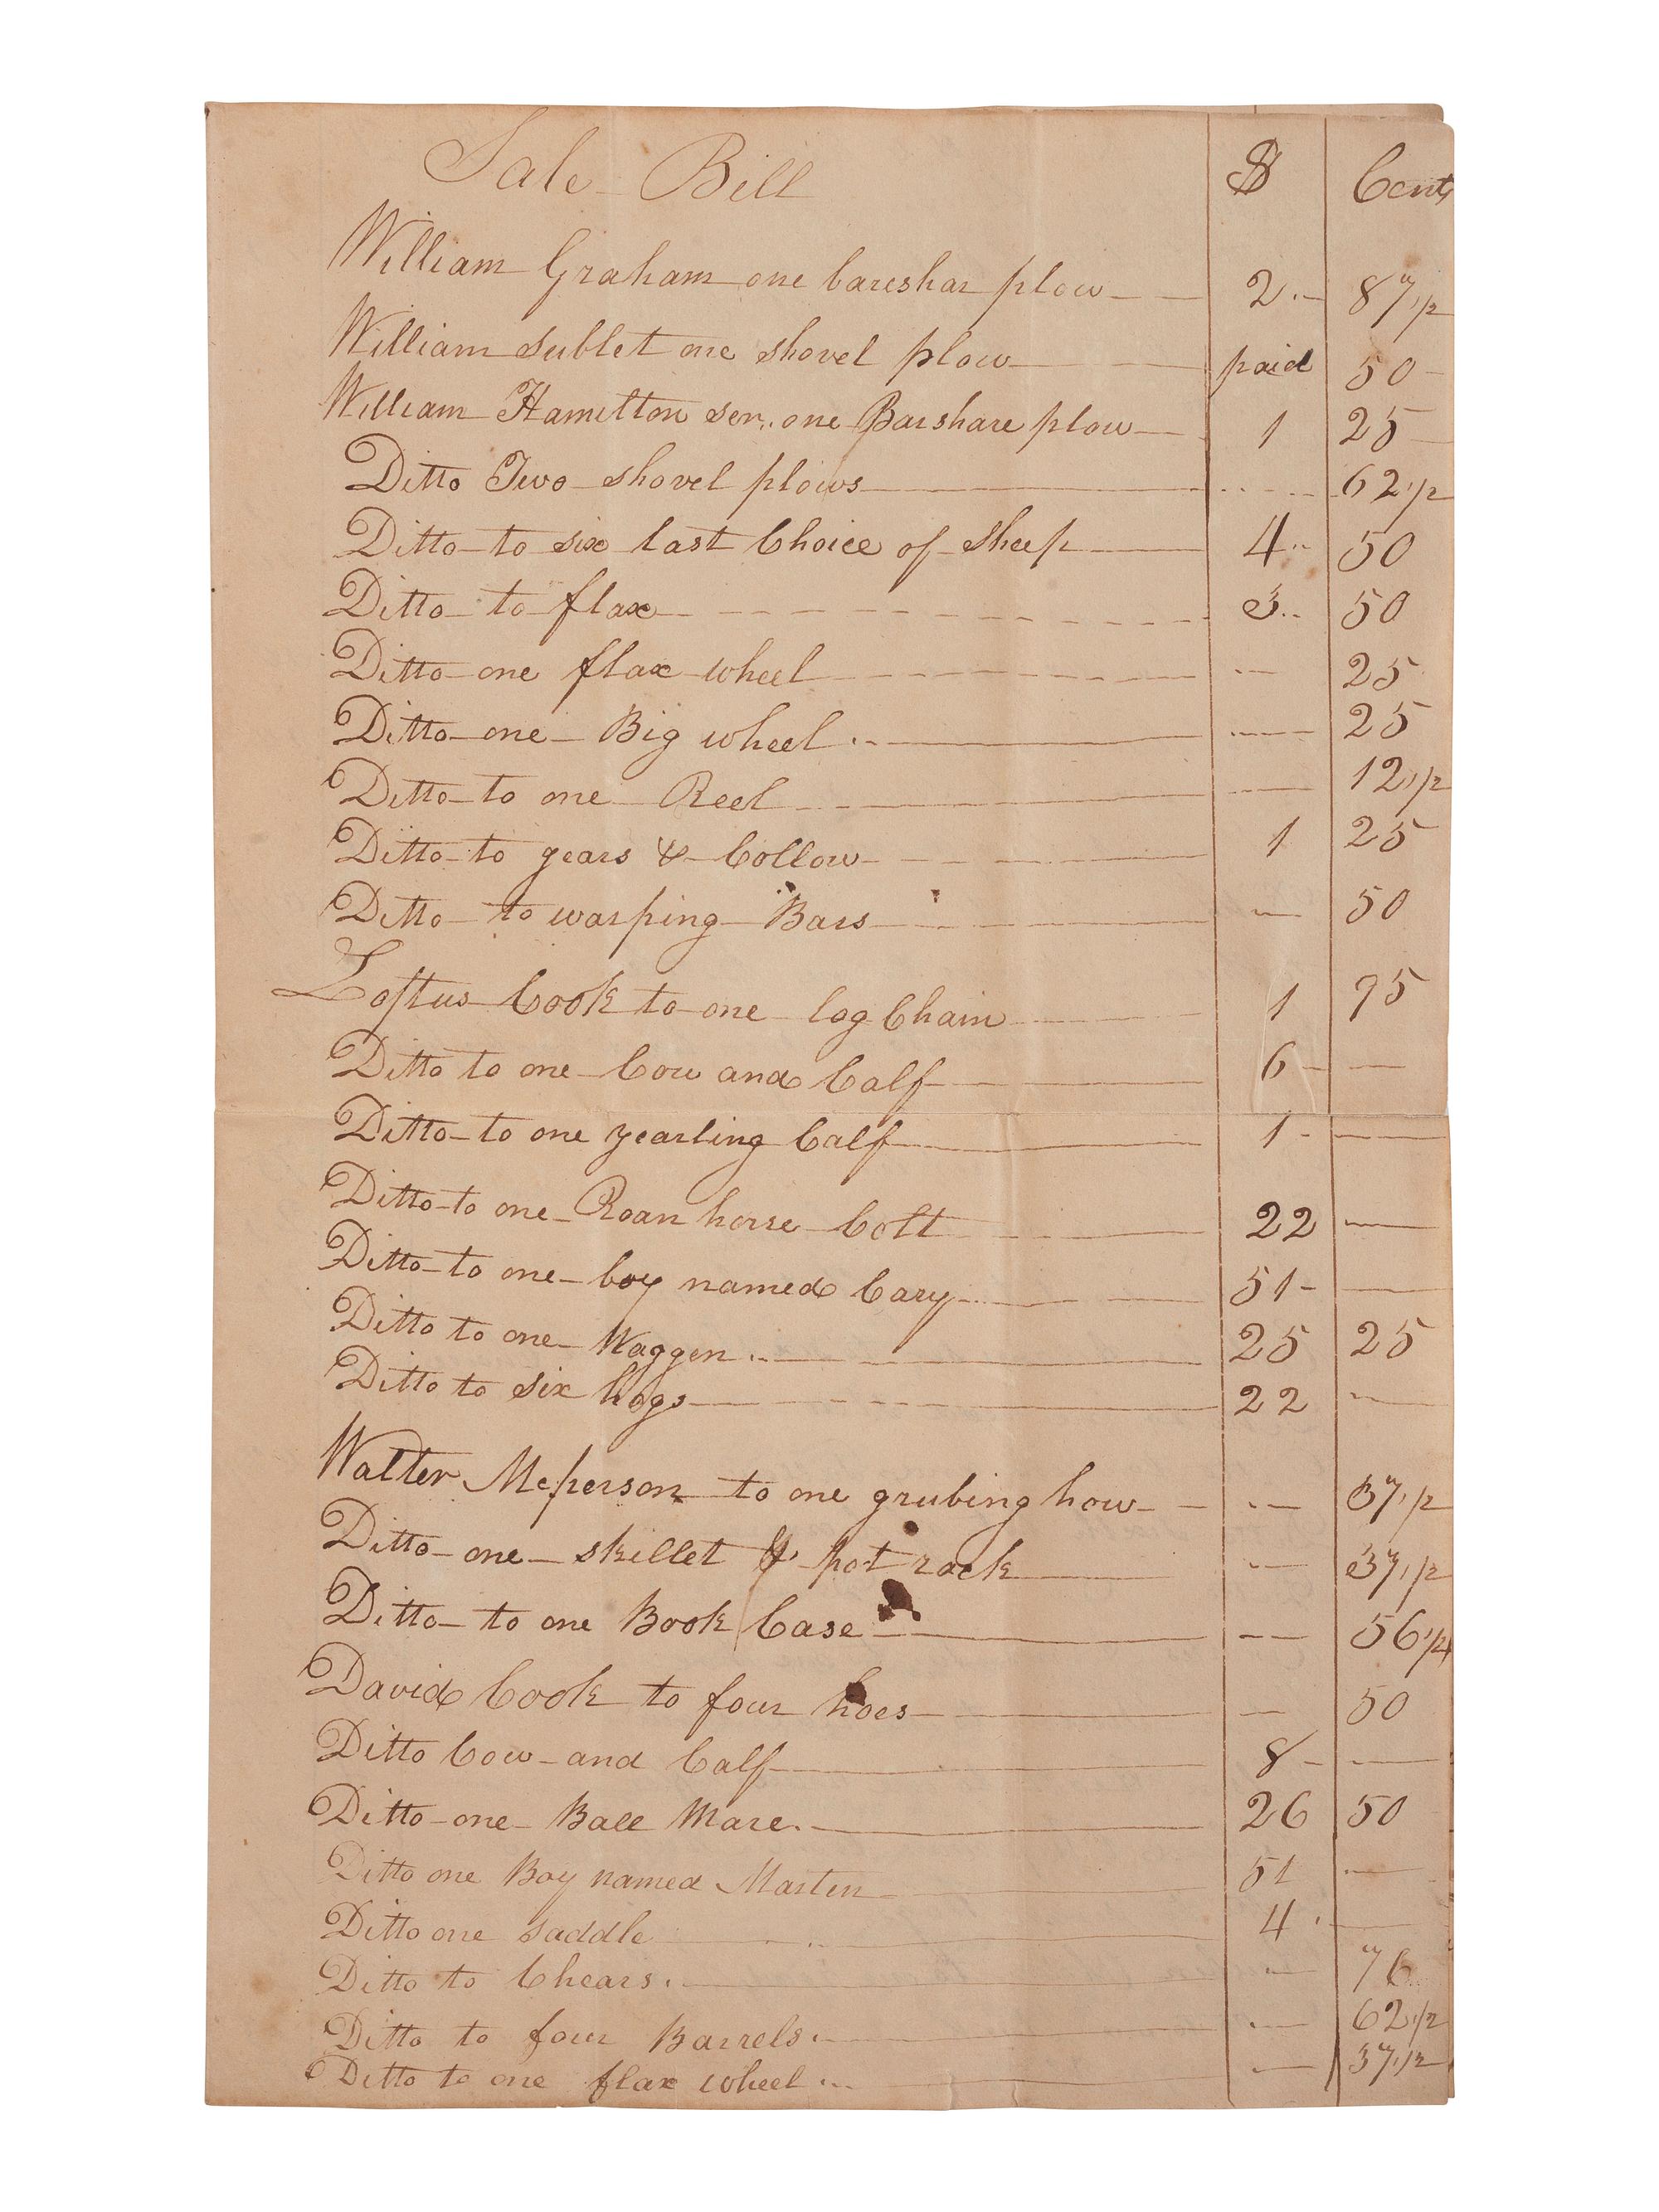 Sale Bill $ Cents
William Graham one bareshar plow 2 87 1/2
William Sublet one shovel plow paid 50
William Hamilton sen. one Barshare plow 1 25
Ditto Two shovel plows 62 1/2
Ditto to six last Choice of sheep 4 50
Ditto to flax 3 50
Ditto one flax wheel 25
Ditto one Big wheel 25
Ditto to one Reel 12 1/2
Ditto to gears & Collow 1 25
Ditto to warping Bars 50
Loftus Cook to one log Chain 1 95
Ditto to one Cow and Calf 6
Ditto to one yearling Calf 1
Ditto to one Roan horse Colt 22
Ditto to one boy named Cary 51
Ditto to one Waggen 25 25
Ditto to six hogs 22
Walter Mcperson to one grubing how 37 1/2
Ditto one skillet & pot rack 37 1/2
Ditto to one Book Case 56 1/4
David Cook to four hoes 50
Ditto Cow and Calf 8
Ditto one Ball Mare 26 50
Ditto one Boy named Marten 51
Ditto one saddle 4
Ditto to Chears 76
Ditto to four Barrels 62 1/2
Ditto to one flax wheel 37 1/2